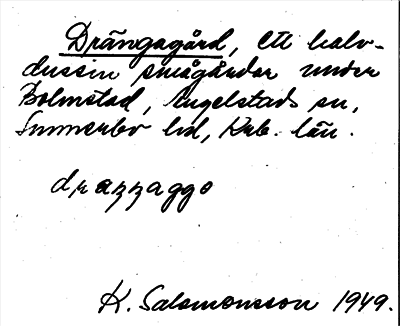 Drängagård, ett halv-
dussin smågårdar under
Bolmstad, Angelstads sn,
Sunnerbo hd, Krb. län.
draŋŋaggo
K. Salomonsson 1949.